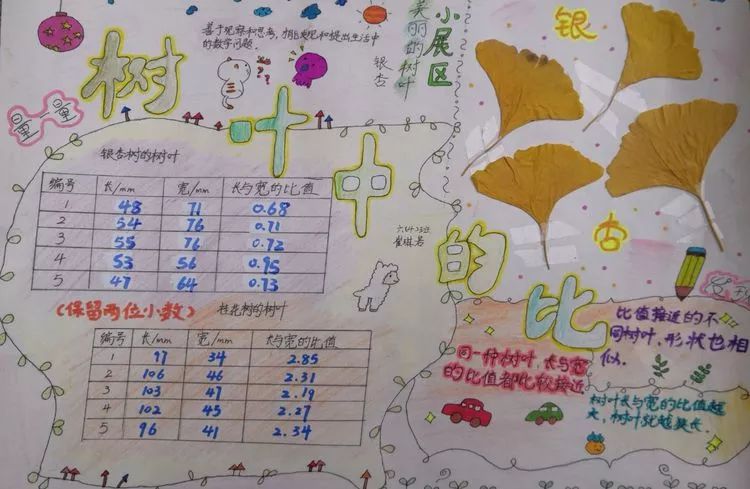 树叶中的比
善于观察和思考,
的数学问题.
小展区
美丽的树叶
银杏
银
杏
量一量
银杏树的树叶
编号 长/mm 宽/mm 长与宽的比值
1 48 71 0.68
2 54 76 0.71
3 55 76 0.72
4 53 56 0.95
5 47 64 0.73
(保留两位小数)
桂花树的树叶
编号 长/mm 宽/mm 长与宽的比值
1 97 34 2.85
2 106 46 2.31
3 103 47 2.19
4 102 45 2.27
5 96 41 2.34
比值接近的不
同树叶,形状也相
似.
同一种树叶,长与宽
的比值都比较接近
树叶长与宽的比值越
大,树叶就越狭长.